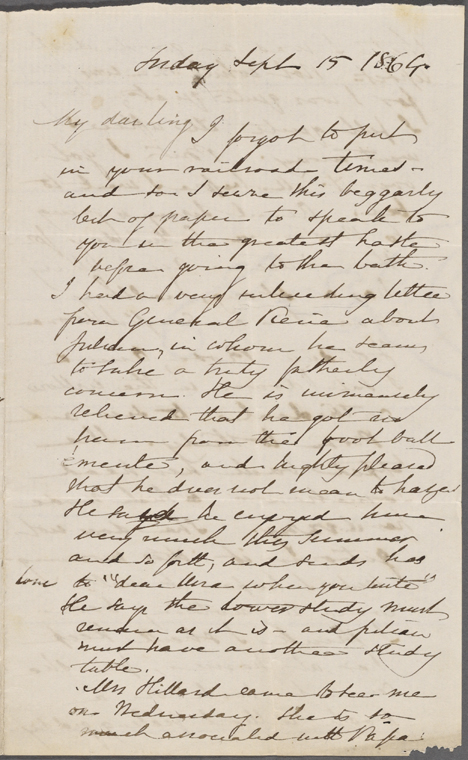 Sunday Sept 15 1864.
My darling I forgot to put
in your railroad times -
and so I seize this beggarly
bit of paper to speak to
you in the greatest haste
before going to the bath.
I had a very interesting letter
from General about
Julian, in whom he seems
to take a truly fatherly
concern. He is immensely
relieved that he got no
harm from the foot ball
and highly pleased
that he does not mean to
He says he enjoyed
very much this Summer
and so forth, and sends his
love to "dear Una when you write"
He says the tower study must
remain as it is - and Julian
must have another study
table.
Mrs Hillard came to see me
on Wednesday. She is so
much associated with Papa